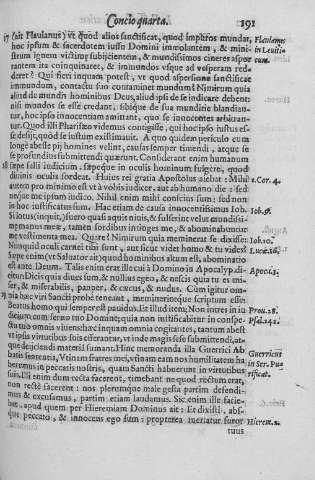 Concio quarta. 191
17 (ait Flaulanus) vt quod alios sanctificat, quod impuros mundat,
hoc ipsum & sacerdotem iussu Domini immolantem, & mini-
strum ignem victimę subijcientem, & mundissimos cineres aspor
rantem ita coinquinaret, & immundos vsque ad vesperam red-
deret? Qui fieri inquam potest, vt quod aspersione sanctificat
immundum, contactu suo contaminet mundum? Nimirum quia
aliud est de munditia hominibus Deus, aliud ipsi de se
nisi mundos se esse credant, sibique de sua munditie blandian-
tur, hoc ipso innocentiam amittant, quo se innocentes arbitran-
tur. Quod illi Pharisæo videmus contigisse, qui hoc ipso iustus es-
se desijt, quod se iustum existimauit. A quo quidem periculo cum
longè abesse pij homines velint, causas semper timendi, atque se
se profundius submittendi quærunt. Considerant enim humanum
18 sæpe falli iudicium, sæpeque in oculis hominum fulgere, quod
diuinis oculis sordeat. Huius rei gratia Apostolus aiebat: Mihi
autem pro minimo est vt à vobis iudicer, aut ab humano die: sed
neque me ipsum iudico. Nihil enim mihi conscius sum: sed non
in hoc iustificatus sum. Hac etiam de causa innocentissimus Iob,
Si lotus (inquit,) fuero quasi aquis niuis, & fulserint velut mundissi-
mæ manus meæ, tamen sordibus intinges me, & abominabuntur
me vestimenta mea. Quare? Nimirum quia meminerat se dixisse:
Nunquid oculi carnei tibi sunt, aut sicut videt homo & tu vides?
Sæpe enim (vt Saluator ait) quod hominibus altum est, abominatio
est ante Deum. Talis enim erat ille cui à Domino in Apocalyp. di-
citur: Dicis quia diues sum, & nullius egeo, & nescis quia tu es mi-
ser, & miserabilis, & pauper, & cæcus, & nudus. Cùm igitur om-
nia hæc viri Sancti probè teneant, meminerintque scriptum esse:
Beatus homo qui semper est pauidus. Et illud item; Non intres in iu
dicium cum seruo tuo Domine; quia non iustificabitur in conspe-
ctu tuo omnis viuens: hæc inquam omnia cogitantes, tantum abest
vt ipsis virtutibus suis efferantur, vt inde magis sese submittendi, at-
que deijciendi materiam sumant. Hinc memoranda illa Guerrici Ab
batis sententia, Vtinam fratres mei, vtinam eam nos humilitatem ha
beremus in peccatis nostris, quam Sancti habuerunt in virtutibus
suis. Illi enim dum recta facerent, timebant ne quod rectum erat,
non rectè facerent: nos plerumque malè gesta partim defendi-
mus & excusamus, partim etiam laudamus. Sic enim ille facie-
bat, apud quem per Hieremiam Dominus ait: Et dixisti, abs-
que peccato, & innocens ego sum: propterea auertatur furor
tuus
Flaulanus
in Leuiti-
cum.
1. Cor. 4.
Iob. 9.
Iob. 10.
Luc. 16.
Apoc. 3.
Prou. 28.
Psal. 142.
Guerricus
in Ser. Pu
rificat.
Hierem. 2.